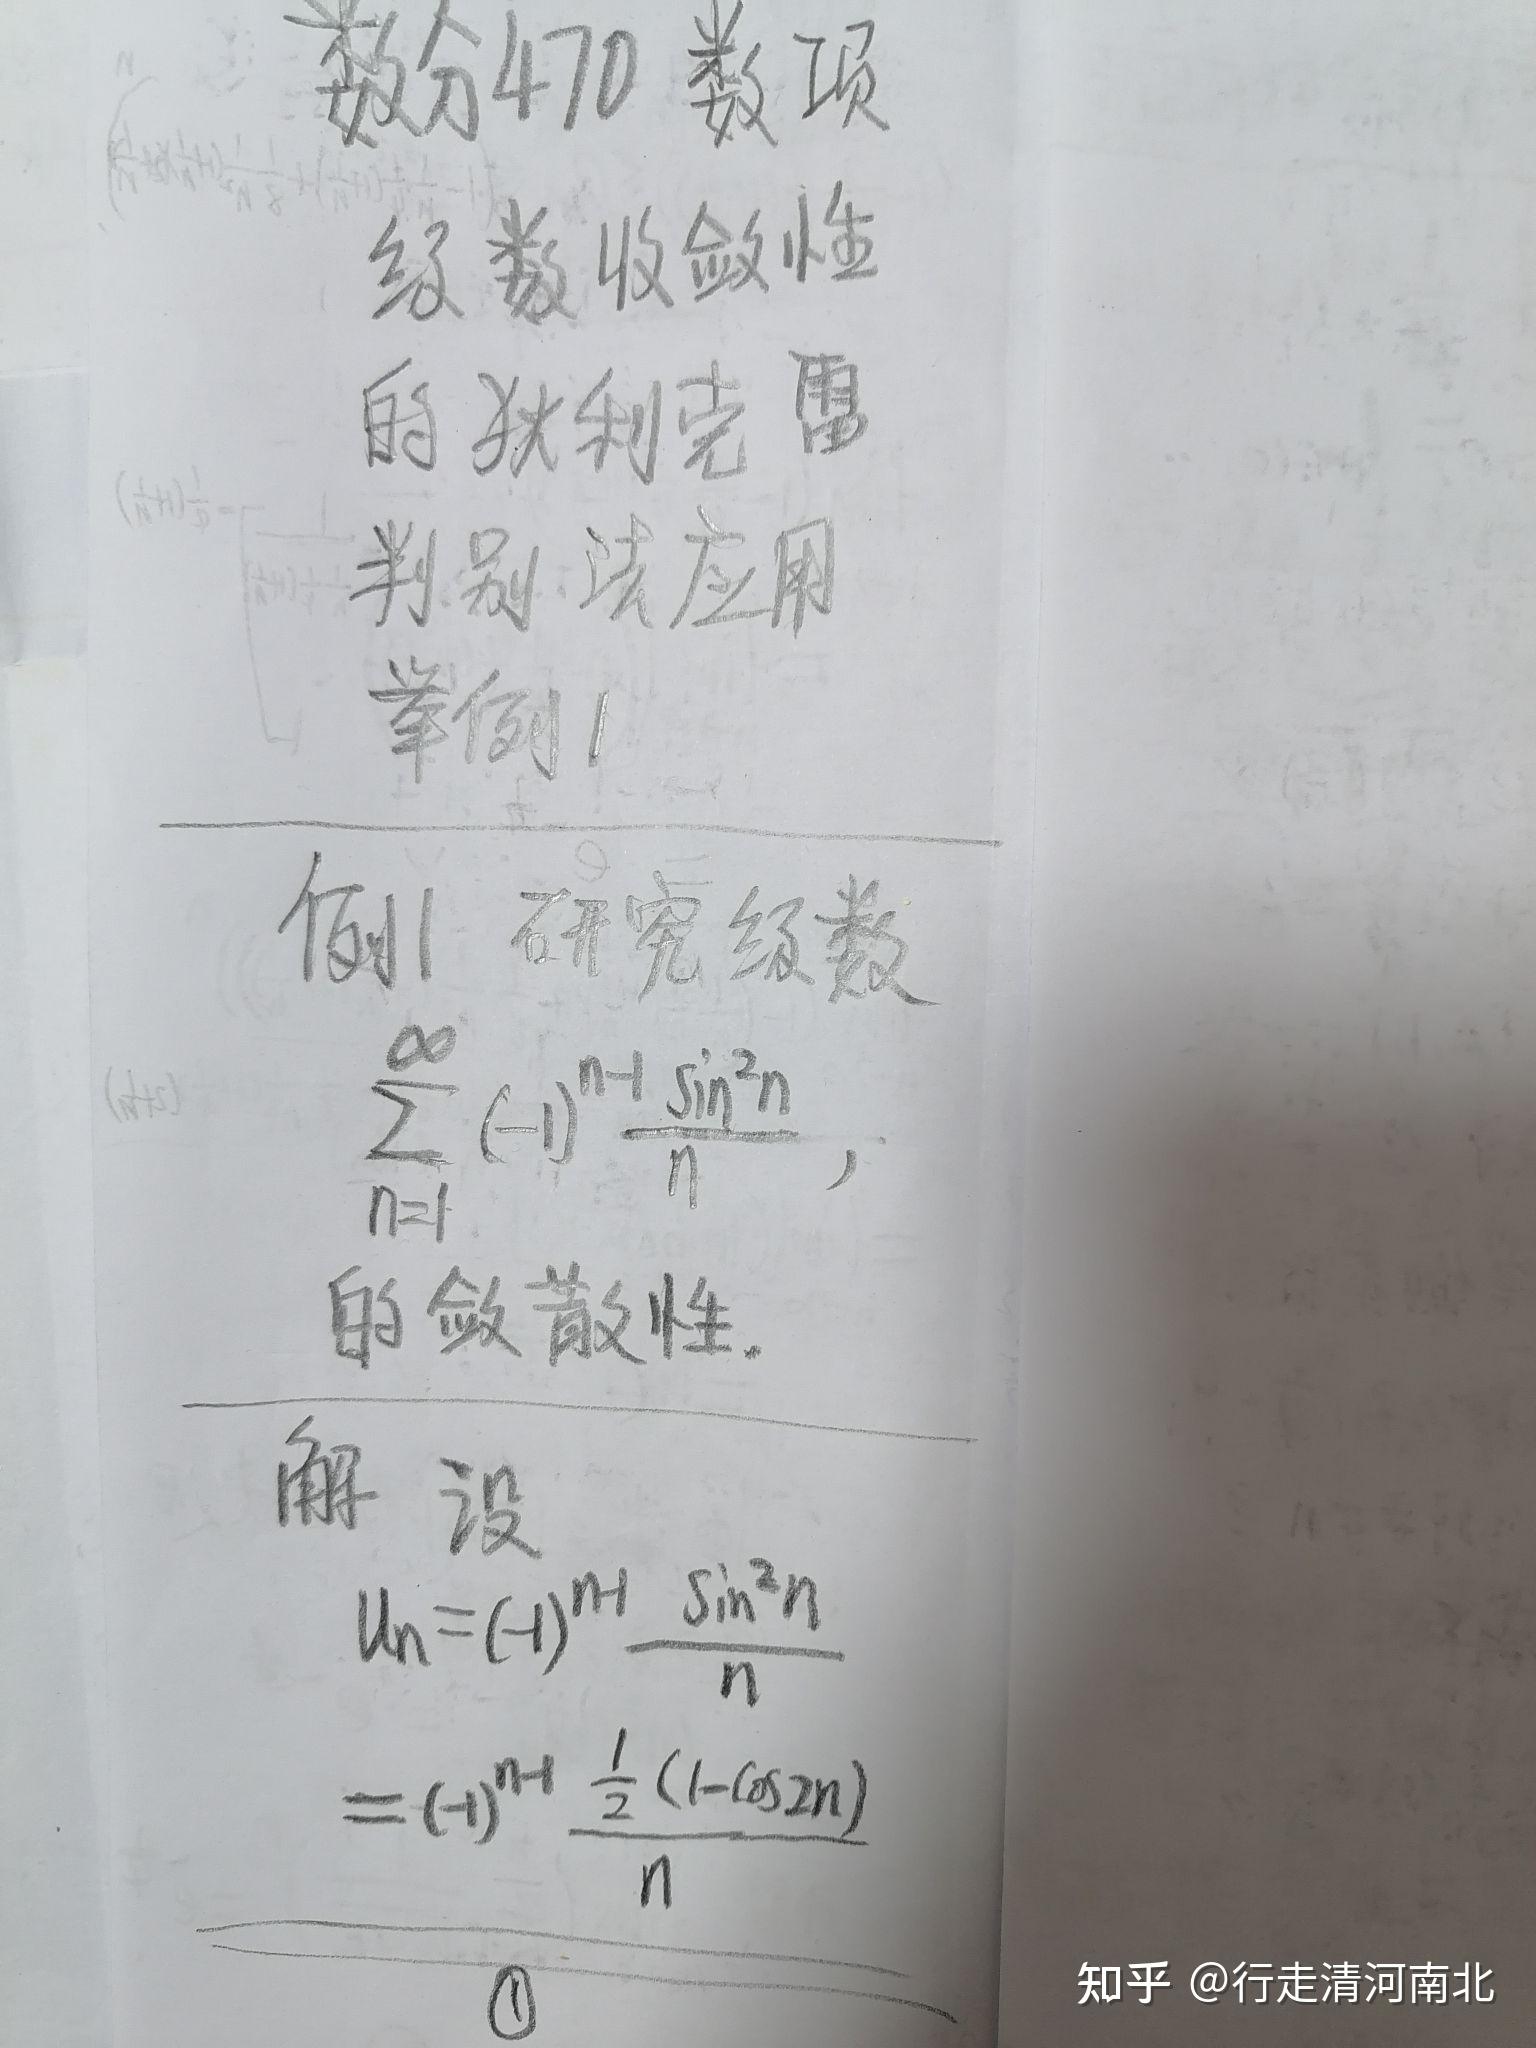 数分470 数项
级数收敛性
的狄利克雷
判别法应用
举例1
例1 研究级数
∞
∑ (-1)^{n-1} \frac{sin²n}{n} ,
n=1
的敛散性.
解 设
u_n = (-1)^{n-1} \frac{sin²n}{n}
= (-1)^{n-1} \frac{\frac{1}{2}(1-cos2n)}{n}
①
知乎 @行走清河南北